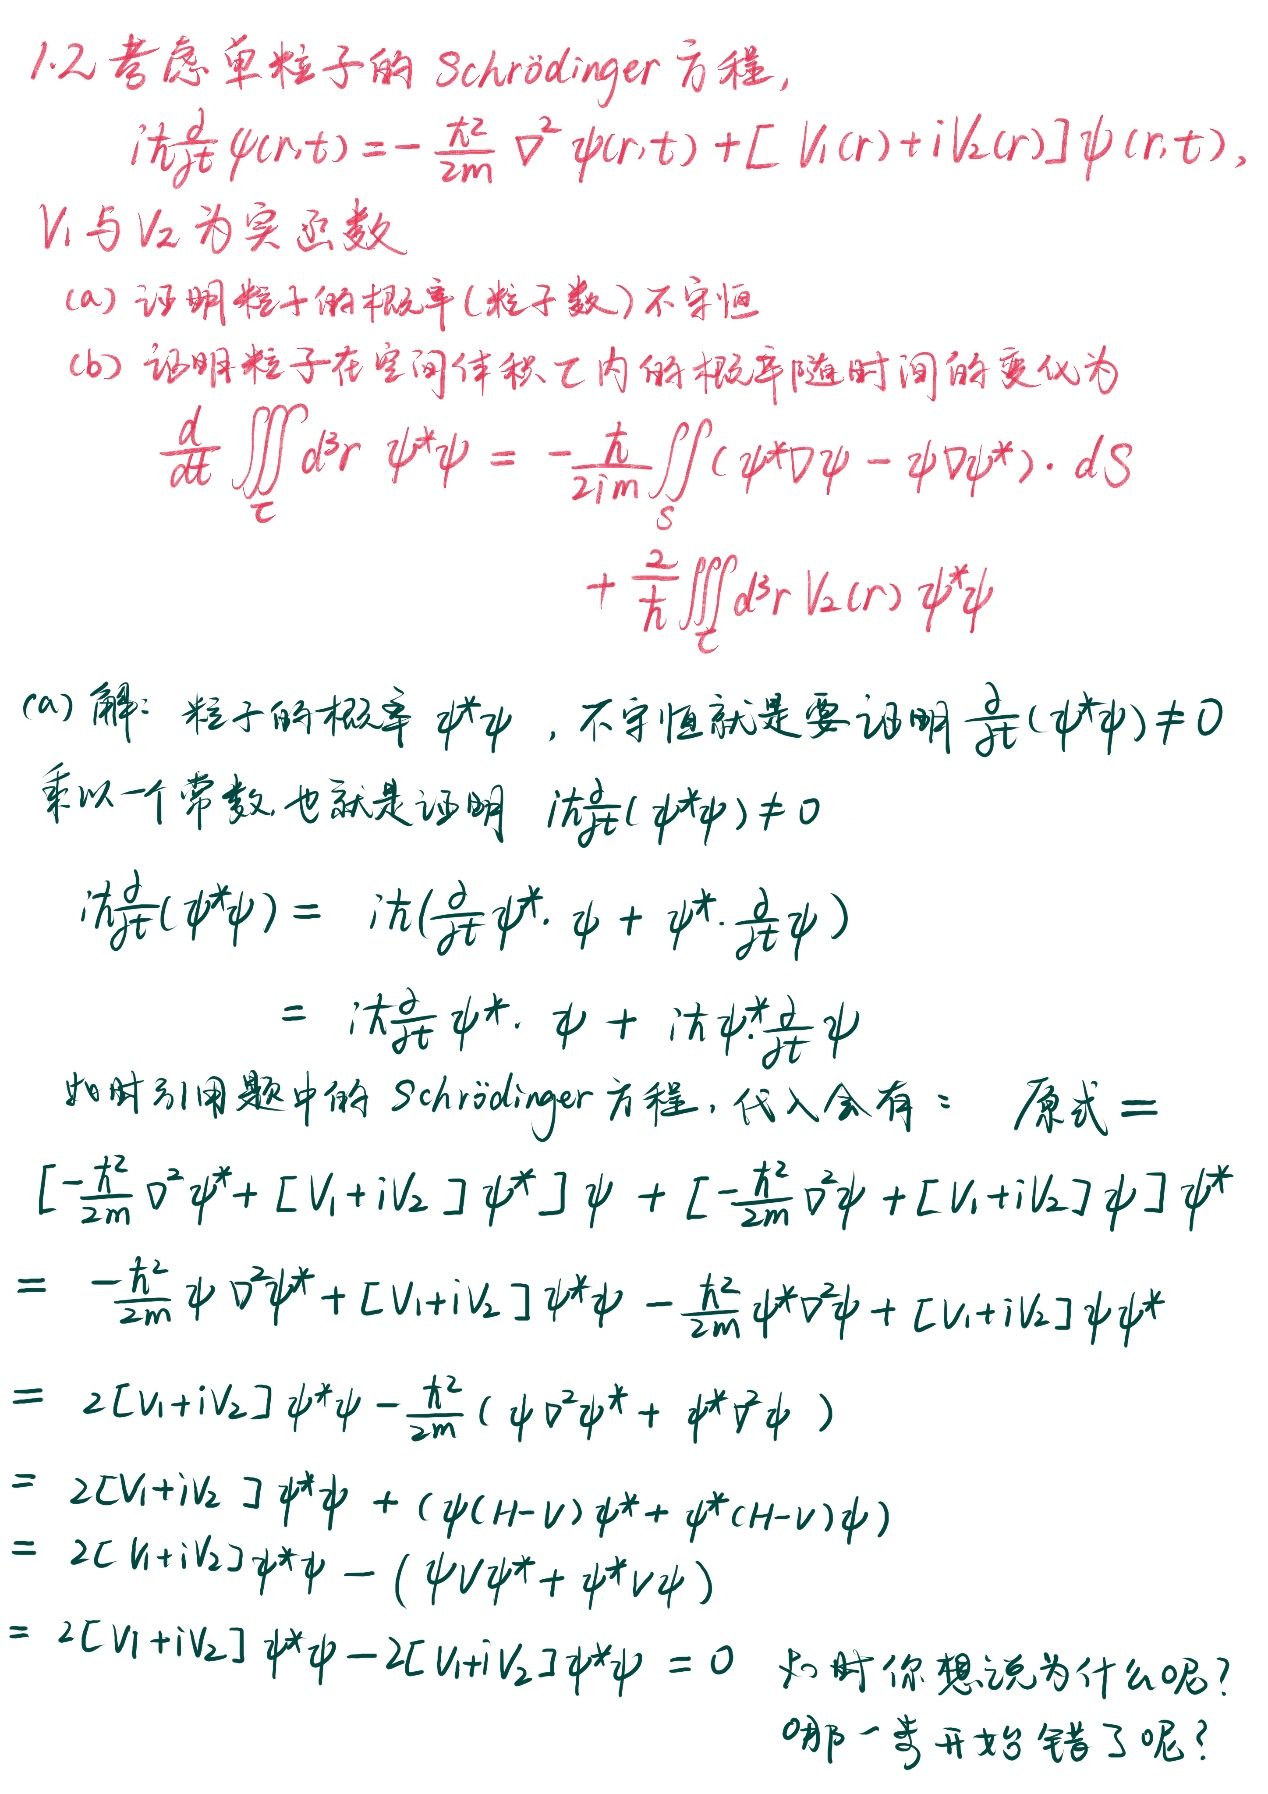 1.2 考虑单粒子的 Schrödinger 方程,
iħ ∂/∂t ψ(r,t) = - ħ²/2m ∇² ψ(r,t) + [V₁(r) + iV₂(r)]ψ(r,t),
V₁与V₂为实函数
(a) 证明粒子的概率(粒子数)不守恒
(b) 证明粒子在空间体积τ内的概率随时间的变化为
d/dt ∭_τ d³r ψ*ψ = - ħ/2im ∬_S (ψ*∇ψ - ψ∇ψ*)·dS
+ 2/ħ ∭_τ d³r V₂(r) ψ*ψ
(a) 解: 粒子的概率 ψ*ψ , 不守恒就是要证明 ∂/∂t(ψ*ψ) ≠ 0
乘以一个常数,也就是证明 iħ ∂/∂t(ψ*ψ) ≠ 0
iħ ∂/∂t(ψ*ψ) = iħ(∂/∂t ψ*·ψ + ψ*·∂/∂t ψ)
= iħ ∂/∂t ψ*·ψ + iħψ*·∂/∂t ψ
此时引用题中的 Schrödinger 方程,代入会有: 原式 =
[-ħ²/2m ∇²ψ* + [V₁+iV₂]ψ*]ψ + [-ħ²/2m ∇²ψ + [V₁+iV₂]ψ]ψ*
= -ħ²/2m ψ∇²ψ* + [V₁+iV₂]ψ*ψ - ħ²/2m ψ*∇²ψ + [V₁+iV₂]ψψ*
= 2[V₁+iV₂]ψ*ψ - ħ²/2m (ψ∇²ψ* + ψ*∇²ψ)
= 2[V₁+iV₂]ψ*ψ + (ψ(H-V)ψ* + ψ*(H-V)ψ)
= 2[V₁+iV₂]ψ*ψ - (ψVψ* + ψ*Vψ)
= 2[V₁+iV₂]ψ*ψ - 2[V₁+iV₂]ψ*ψ = 0 此时你想说为什么呢?
哪一步开始错了呢?